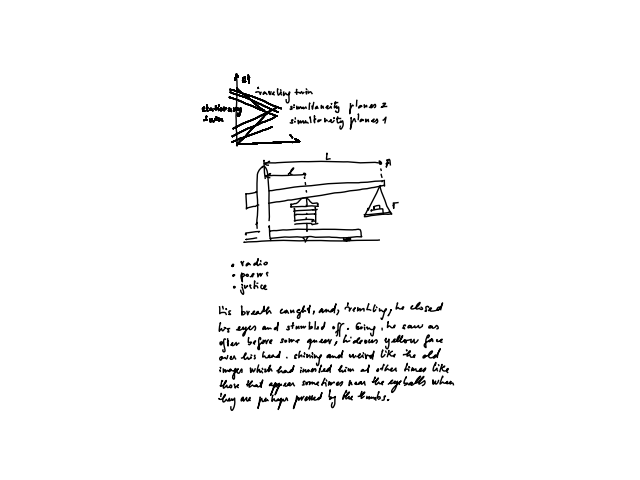 ct
traveling twin
stationary
twin
simultaneity planes 2
simultaneity planes 1
L
A
l
F
• radio
• poems
• justice
His breath caught, and, trembling, he closed
his eyes and stumbled off. Going, he saw as
often before some queer, hideous yellow face
over his head. shining and weird like the old
images which had invited him at other times like
those that appear sometimes near the eyeballs when
they are perhaps pressed by the thumbs.